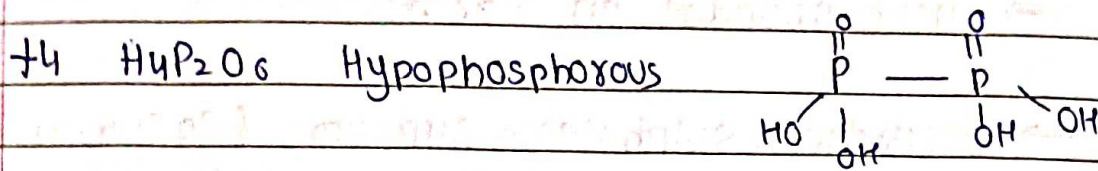 +4 H4P2O6 Hypophosphorous
O O
|| ||
P — P
HO | OH OH
OH